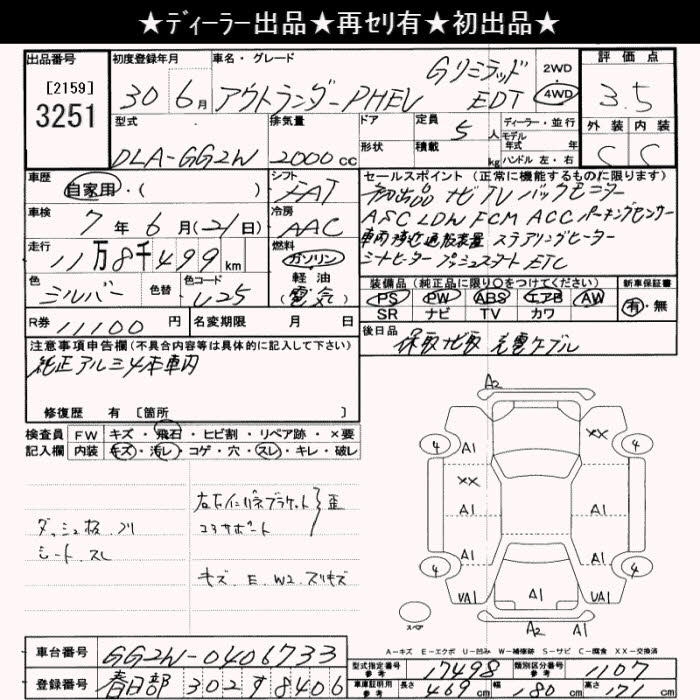 ★ディーラー出品★再セリ有★初出品★
出品番号 [2159] 3251
初度登録年月 30年 6月
車名・グレード アウトランダーPHEV Gリミテッド EDT
2WD 4WD
評価点 3.5
外装 内装
C C
型式 DLA-GG2W
排気量 2000cc
ドア 形状
定員 5人
積載 kg
ディーラー・並行
モデル年式 年
ハンドル 左・右
車歴 自家用・( )
シフト FAT
車検 7年6月(21日)
冷房 AAC
走行 11万8千499km
燃料 ガソリン 軽油 (電気)
色 シルバー 色替
色コード U25
R券 11100円
名変期限 月 日
セールスポイント (正常に機能するものに限ります)
初出品 ナビ TV バックモニター
ASC LDW FCM ACC パーキングセンサー
車両接近通報装置 ステアリングヒーター
シートヒーター プッシュスタート ETC
装備品 (純正品に限り○をつけてください)
新車保証書
PS PW ABS エアB AW
SR ナビ TV カワ
有・無
後日品 保取 ナビ取 充電ケーブル
注意事項申告欄(不具合内容等は具体的に記入して下さい)
純正アルミ4本車内
修復歴 有 [箇所 ]
検査員記入欄
FW キズ・飛石・ヒビ割・リペア跡・×要
内装 キズ・汚レ・コゲ・穴・スレ・キレ・破レ
コアサポート
歪
シート、スレ
キズ、E、W2、スリキズ
A2
4 A1 XX 4
XX
A1 A1
4 A1 4
UA1 A1 UA1
スペア
A2 A1
A-キズ E-エクボ U-凹み W-補修跡 S-サビ C-腐食 XX-交換済
車台番号 GG2W-0406733
登録番号 春日部 302 す 8406
型式指定番号 参考 17498
類別区分番号 参考 1107
車庫証明用 参考
長さ 469cm
幅 180cm
高さ 171cm